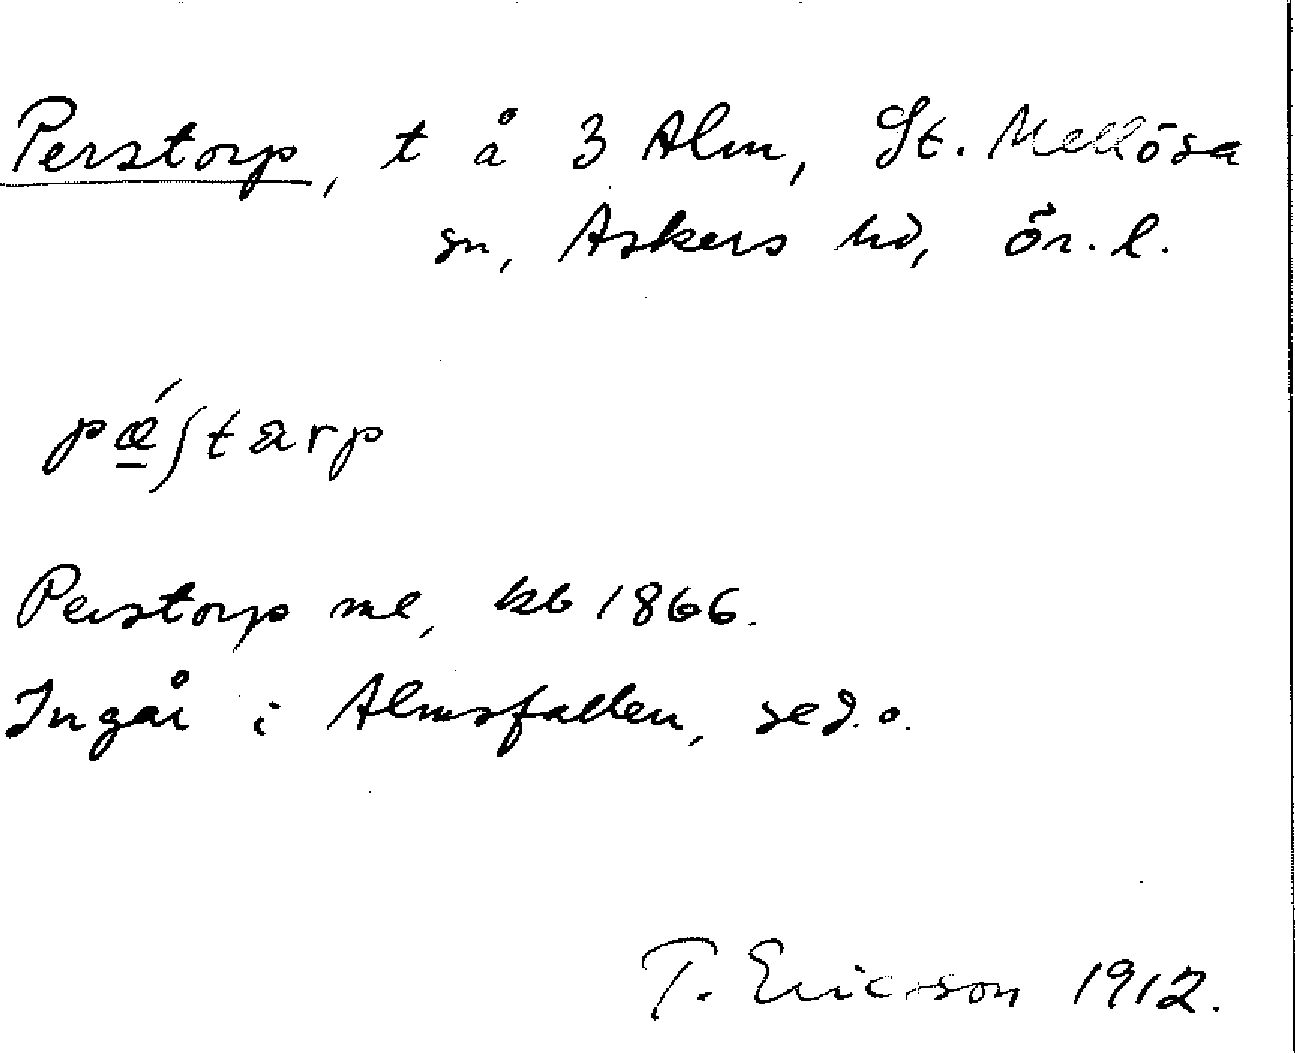 Perstorp, t å 3 Alm, St. Mellösa
sn, Askers hd, Ör. l.
pǽ̠ʃtarp
Perstorp ml, kb 1866.
Ingår i Almsfallen, se d. o.
T. Ericsson 1912.